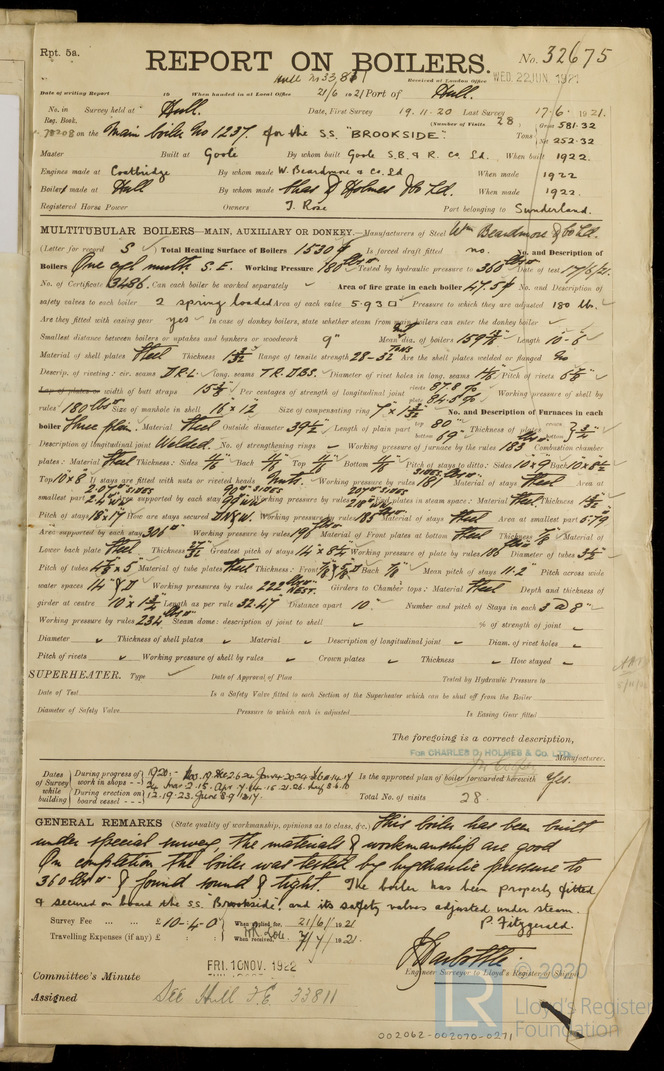 Rpt. 5a.
REPORT ON BOILERS.
No. 32675
Hull No 33,811
Received at London Office WED. 22 JUN 1921
Date of writing Report 19 When handed in at Local Office 21/6 1921 Port of Hull.
No. in Survey held at Hull. Date, First Survey 19.11.20 Last Survey 17-6-1921.
Reg. Book. (Number of Visits 28)
78208 on the Main boiler No 1237. for the S.S. "BROOKSIDE." Tons Gross 581.32 Net 252.32
Master Built at Goole By whom built Goole S.B. & R. Co. Ld. When built 1922.
Engines made at Coatbridge By whom made W. Beardmore & Co. Ld When made 1922
Boilers made at Hull By whom made Chas D Holmes & Co Ld. When made 1922.
Registered Horse Power Owners T. Rose Port belonging to Sunderland.
MULTITUBULAR BOILERS—MAIN, AUXILIARY OR DONKEY.—Manufacturers of Steel Wm Beardmore & Co Ld.
(Letter for record S) Total Heating Surface of Boilers 1530 Is forced draft fitted no. No. and Description of
Boilers One cyl mult. S.E. Working Pressure 180 lbs Tested by hydraulic pressure to 360 lbs Date of test 17/6/21.
No. of Certificate 3486. Can each boiler be worked separately Area of fire grate in each boiler 47.5 No. and Description of
safety valves to each boiler 2 spring loaded Area of each valve 5.93 Pressure to which they are adjusted 180 lb.
Are they fitted with easing gear yes In case of donkey boilers, state whether steam from main boilers can enter the donkey boiler
Smallest distance between boilers or uptakes and bunkers or woodwork 9" Mean dia. of boilers Length 10-6
Material of shell plates Steel Thickness Range of tensile strength 28-32 Tons Are the shell plates welded or flanged No
Descrip. of riveting: cir. seams D.R.L. long. seams T.R.D.B.S. Diameter of rivet holes in long. seams Pitch of rivets
Lap of plates or width of butt straps Per centages of strength of longitudinal joint rivets 87.8 plate 84.5 Working pressure of shell by
rules 180 lbs Size of manhole in shell 16" x 12 Size of compensating ring No. and Description of Furnaces in each
boiler Three plain. Material Steel Outside diameter Length of plain part top 80" bottom 69" Thickness of plates crown bottom
Description of longitudinal joint Welded. No. of strengthening rings Working pressure of furnace by the rules 183 Combustion chamber
plates: Material Steel Thickness: Sides Back Top Bottom Pitch of stays to ditto: Sides 10 x 9 Back
Top 10 x 8 If stays are fitted with nuts or riveted heads Nuts. Working pressure by rules 181 Material of stays Steel Area at
smallest part Area supported by each stay Working pressure by rules End plates in steam space: Material Steel Thickness
Pitch of stays 18 x 17 How are stays secured D.N.&W. Working pressure by rules 185 Material of stays Steel Area at smallest part 5.79
Area supported by each stay 306 Working pressure by rules 196 Material of Front plates at bottom Steel Thickness Material of
Lower back plate Steel Thickness Greatest pitch of stays Working pressure of plate by rules Diameter of tubes
Pitch of tubes Material of tube plates Steel Thickness: Front Back Mean pitch of stays 11.2 Pitch across wide
water spaces 14" Working pressures by rules 222 Girders to Chamber tops: Material Steel Depth and thickness of
girder at centre Length as per rule 32.47 Distance apart 10. Number and pitch of Stays in each 3 @ 8"
Working pressure by rules 234 Steam dome: description of joint to shell % of strength of joint
Diameter Thickness of shell plates Material Description of longitudinal joint Diam. of rivet holes
Pitch of rivets Working pressure of shell by rules Crown plates Thickness How stayed
SUPERHEATER. Type Date of Approval of Plan Tested by Hydraulic Pressure to
Date of Test Is a Safety Valve fitted to each Section of the Superheater which can be shut off from the Boiler
Diameter of Safety Valve Pressure to which each is adjusted Is Easing Gear fitted
The foregoing is a correct description,
FOR CHARLES D. HOLMES & CO. LTD. Manufacturer.
Dates of Survey while building
During progress of work in shops
During erection on board vessel
1920:- Nov. 19
Is the approved plan of boiler forwarded herewith Yes.
Total No. of visits 28.
GENERAL REMARKS (State quality of workmanship, opinions as to class, &c.) This boiler has been built
under special survey, the materials & workmanship are good
On completion the boiler was tested by hydraulic pressure to
360 lbs & found sound & tight. The boiler has been properly fitted
& secured on board the S.S. "Brookside" and its safety valves adjusted under steam.
P. Fitzgerald.
Survey Fee £10-4-0 When applied for, 21/6/1921
Travelling Expenses (if any) £ When received, 7/7/1921.
Engineer Surveyor to Lloyd's Register of Shipping
Committee's Minute FRI. 10 NOV. 1922
Assigned See Hull F.E. 33811
© 2020
LR
Lloyd's Register
Foundation
002062-002070-0271